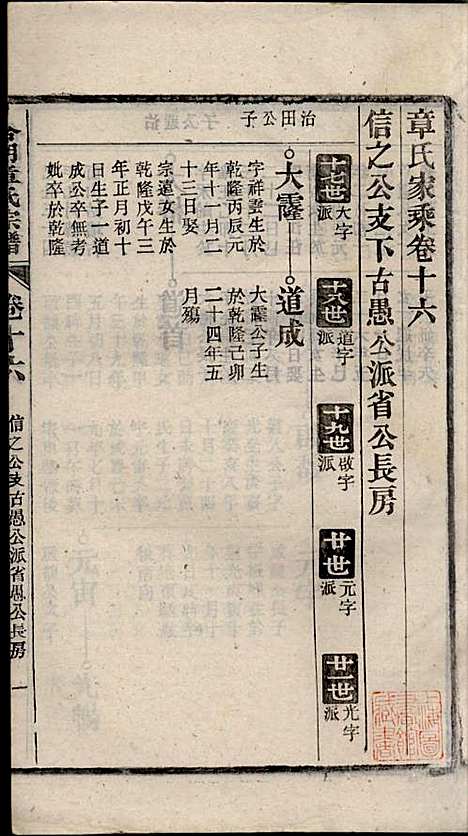 章氏家乘卷十六
信之公支下古愚公派省公長房
十七世 大字派
十八世 道字派
十九世 啟字派
廿世 元字派
廿一世 光字派
治田公子
大霳
字祥雲生於
乾隆丙辰元
年十一月二
十三日娶
宗氏女生於
乾隆戊午三
年正月初十
日生子一道
成公卒無考
妣卒於乾隆
道成
大霳公子生
於乾隆己卯
二十四年五
月殤
章氏宗譜
卷十六
信之公支古愚公派省愚公長房
一